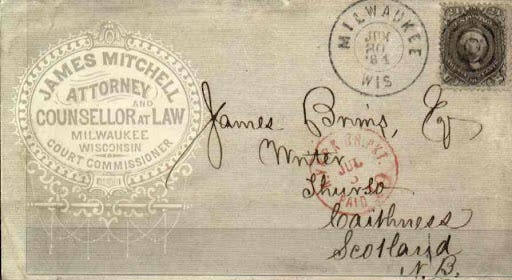 JAMES MITCHELL
ATTORNEY
AND
COUNSELLOR AT LAW
MILWAUKEE
WISCONSIN
COURT COMMISSIONER
MILWAUKEE
JUN
20
WIS
James Brims, Esq
Writer
Thurso
Caithness
Scotland
N.B.
PKT.
JUL
PAID